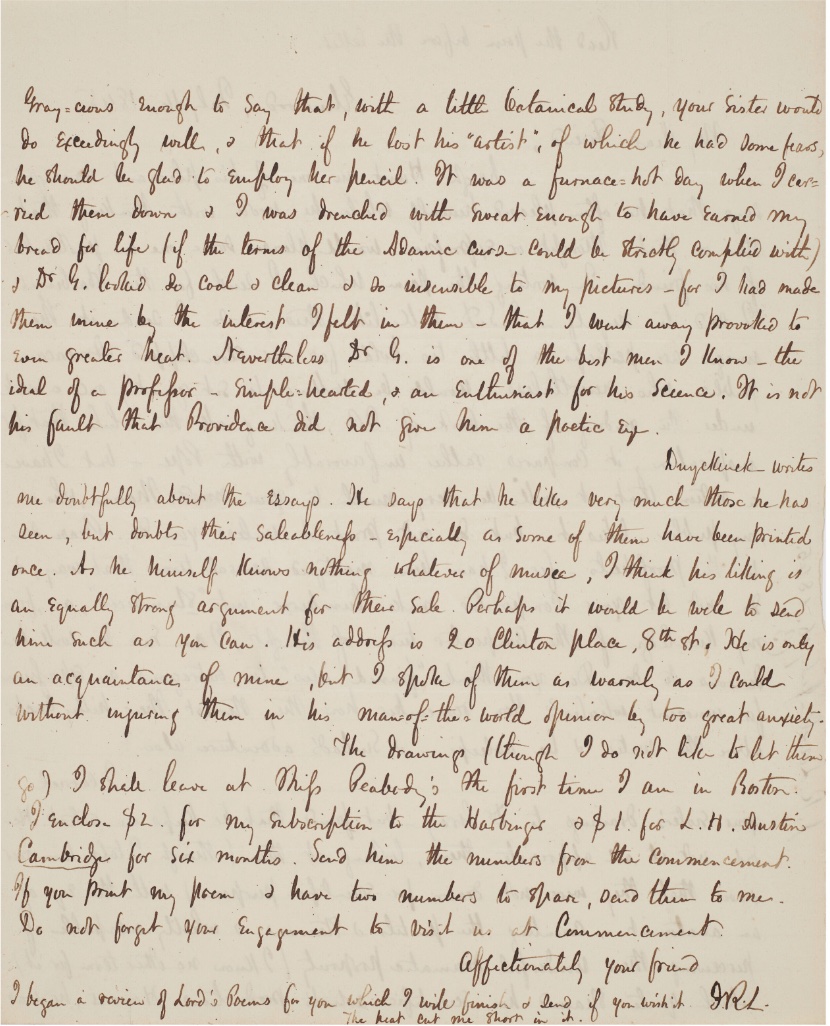 Gray=cious enough to say that, with a little botanical study, your sister would
do exceedingly well, & that if he lost his "artist", of which he had some fears,
he should be glad to employ her pencil. It was a furnace=hot day when I car=
ried them down & I was drenched with sweat enough to have earned my
bread for life (if the terms of the Adamic curse could be strictly complied with)
& Dr G. looked so cool & clean & so insensible to my pictures – for I had made
them mine by the interest I felt in them – that I went away provoked to
even greater heat. Nevertheless Dr G. is one of the best men I know – the
ideal of a professor – simple=hearted, & an enthusiast for his science. It is not
his fault that Providence did not give him a poetic eye.
Duyckinck writes
me doubtfully about the essays. He says that he likes very much those he has
seen, but doubts their saleableness – especially as some of them have been printed
once. As he himself knows nothing whatever of music, I think his liking is
an equally strong argument for their sale. Perhaps it would be well to send
him such as you can. His address is 20 Clinton place, 8th st. He is only
an acquaintance of mine, but I spoke of them as warmly as I could
without injuring them in his man=of=the=world opinion by too great anxiety.
The drawings (though I do not like to let them
go) I shall leave at Miss Peabody's the first time I am in Boston.
I enclose $2. for my subscription to the Harbinger & $1. for L. H. Austin
Cambridge for six months. Send him the numbers from the commencement.
If you print my poem & have two numbers to spare, send them to me.
Do not forget your engagement to visit us at Commencement.
Affectionately your friend
I began a review of Lord's Poems for you which I will finish & send if you wish it. J.R.L.
The heat cut me short in it.